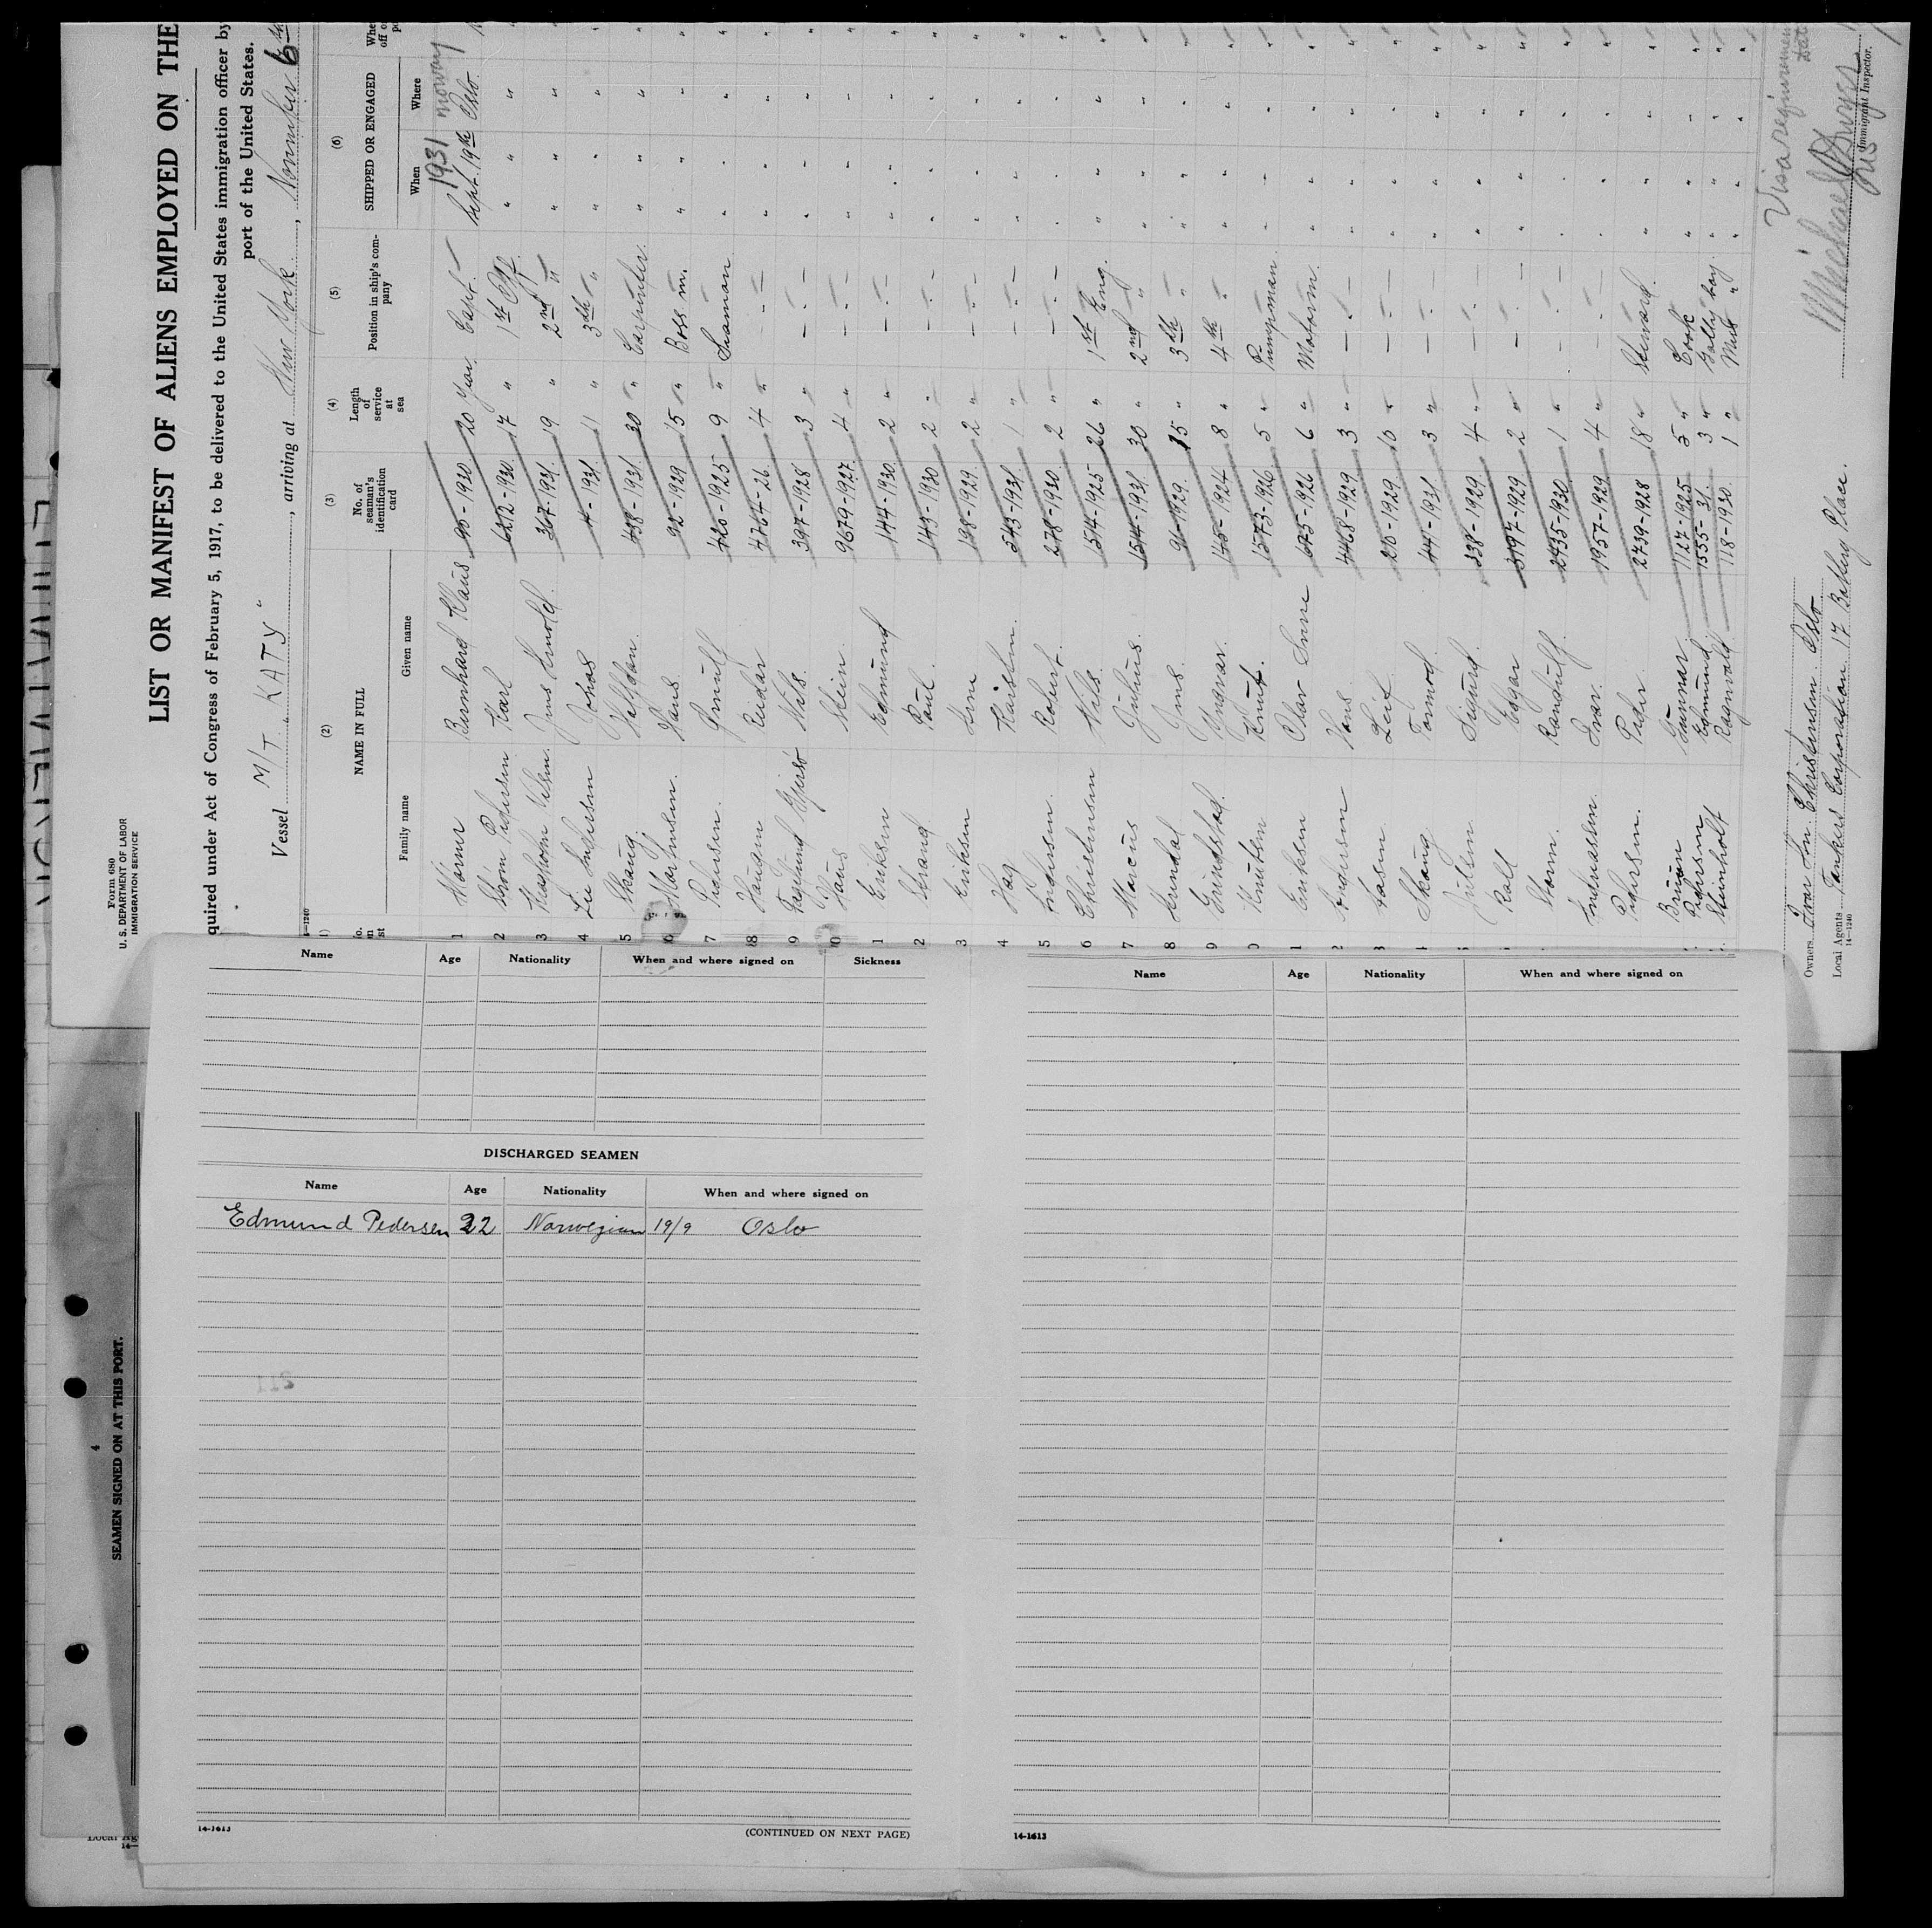 Form 680
U. S. DEPARTMENT OF LABOR
IMMIGRATION SERVICE
LIST OR MANIFEST OF ALIENS EMPLOYED ON THE
quired under Act of Congress of February 5, 1917, to be delivered to the United States immigration officer by
port of the United States.
Vessel M/T. "KATY" , arriving at New York , November 6th
14-1240
(2) (3) (4) (5) (6)
NAME IN FULL No. of seaman's identification card Length of service at sea Position in ship's company SHIPPED OR ENGAGED
Family name Given name When Where
1931 Norway
1 Bernhard Klaus 90-1930 20 year Capt. Sept. 19th Oslo.
2 Karl 6212-1930 17 " 1st Off. " "
3 367-1931 19 " 2nd " " "
4 4-1931 11 " 3th " " "
5 Skaug Halfdan. 438-1931. 30 " Carpenter. " "
6 Hans 92-1929 15 " Boss m. " "
7 Pedersen. Arnulf 420-1925 9 " Seaman " "
8 Haugen Reidar 4764-26 4 " " "
9 Nils. 397-1928 3 " " "
0 Haug Stein. 9679-1927. 4 " " "
1 Eriksen Edmund 144-1930. 2 " " "
2 Strand. Paul. 143-1930 2 " " "
3 Eriksen Arne 198-1929 2 " " "
4 Hag Karsten. 543-1931. 1 " " "
5 Andersen. Robert. 278-1930. 2 " " "
6 Christensen Nils. 1514-1925 26 " 1st Eng. " "
7 Marcus Julius. 1514-1931 30 " 2nd " " "
8 Jens. 96-1929. 15 " 3th " " "
9 Grundstad. Yngvar. 145-1924 8 " 4th " " "
0 Knutsen Knut. 1573-1926. 5 " Pumpman. " "
1 Eriksen Olav 675-1926 6 " Motorm. " "
2 Andersen Hans 4468-1929 3 " " "
3 Aasen. Leif. 210-1929 10 " " "
4 Skaug Tormod. 447-1931 3 " " "
Julsen. Sigurd. 338-1929. 4 " " "
Roll Edgar 3197-1929. 2 " " "
Storm. Randulf. 2435-1930. 1 " " "
Andreassen. Ivar. 1957-1929 4 " " "
Pedersen. Peder 2739-1928 18 " Steward. " "
Bruun Gunnar 1127-1925 5 " Cook " "
Pedersen Edmund. 1555-31. 3 " Gally boy. " "
Steinholt Ragnvald 118-1930. 1 " Mess " " "
Visa requirement
Immigrant Inspector.
Owners Ivar An Christensen. Oslo.
Local Agents Tankers Corporation 17 Battery Place.
14-1240
Name Age Nationality When and where signed on Sickness
DISCHARGED SEAMEN
Name Age Nationality When and where signed on
Edmund Pedersen 22 Norwegian 19/9 Oslo
14-1613
(CONTINUED ON NEXT PAGE)
Name Age Nationality When and where signed on
14-1613
4
SEAMEN SIGNED ON AT THIS PORT.
Local Ag
14-